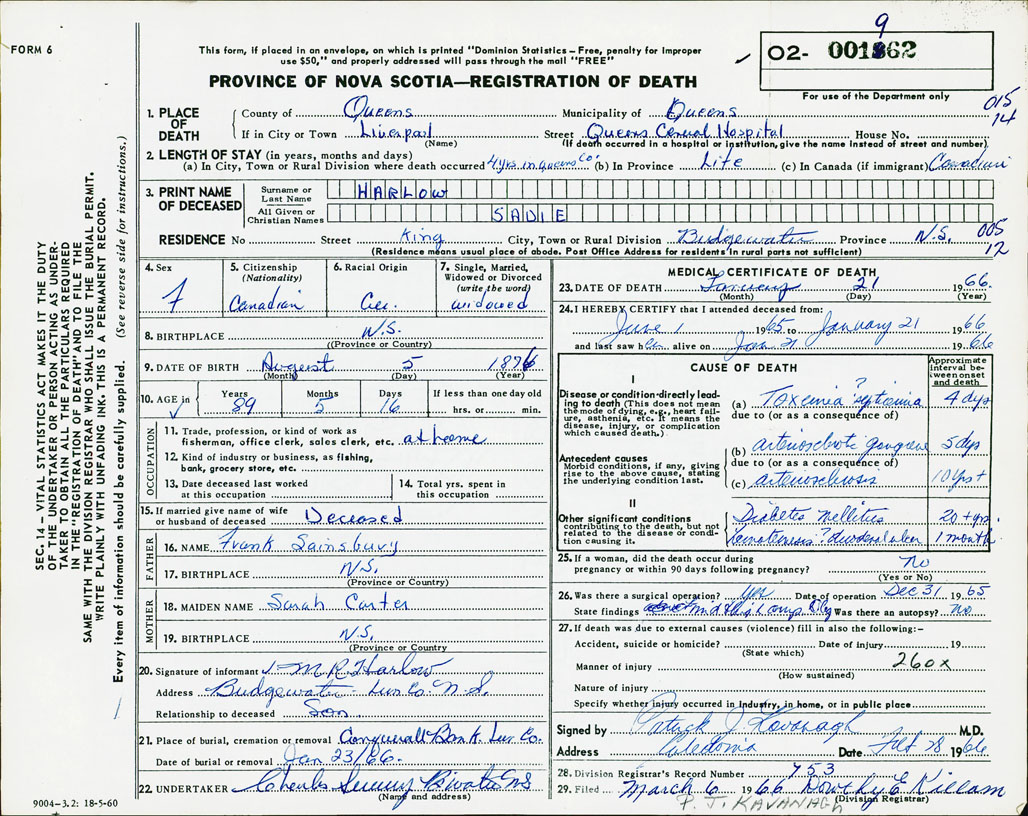 FORM 6
This form, if placed in an envelope, on which is printed "Dominion Statistics – Free, penalty for improper
use $50," and properly addressed will pass through the mail "FREE"
PROVINCE OF NOVA SCOTIA—REGISTRATION OF DEATH
9
02- 001862
For use of the Department only
015
14
1. PLACE OF DEATH
County of Queens Municipality of Queens
If in City or Town Liverpool Street Queens General Hospital House No.
(Name) (If death occurred in a hospital or institution, give the name instead of street and number)
2. LENGTH OF STAY (in years, months and days)
(a) In City, Town or Rural Division where death occurred 4 yrs in Queens Co. (b) In Province Life (c) In Canada (if immigrant) Canadian
3. PRINT NAME OF DECEASED
Surname or Last Name HARLOW
All Given or Christian Names SADIE
RESIDENCE No Street King City, Town or Rural Division Bridgewater Province N.S. 005
12
(Residence means usual place of abode. Post Office Address for residents in rural parts not sufficient)
4. Sex
F
5. Citizenship
(Nationality)
Canadian
6. Racial Origin
7. Single, Married,
Widowed or Divorced
(write the word)
widowed
8. BIRTHPLACE N.S.
(Province or Country)
9. DATE OF BIRTH August 5 1876
(Month) (Day) (Year)
10. AGE in
Years Months Days If less than one day old
89 5 16 hrs. or min.
OCCUPATION
11. Trade, profession, or kind of work as
fisherman, office clerk, sales clerk, etc. at home
12. Kind of industry or business, as fishing,
bank, grocery store, etc.
13. Date deceased last worked
at this occupation
14. Total yrs. spent in
this occupation
15. If married give name of wife
or husband of deceased Deceased
FATHER
16. NAME Frank Sainsbury
17. BIRTHPLACE N.S.
(Province or Country)
MOTHER
18. MAIDEN NAME Sarah Carter
19. BIRTHPLACE N.S.
(Province or Country
20. Signature of informant M R Harlow
Address Bridgewater Lun Co. N.S.
Relationship to deceased Son
21. Place of burial, cremation or removal Conquerall Bank Lun Co.
Date of burial or removal Jan 23/66.
22. UNDERTAKER Charles
(Name and address)
MEDICAL CERTIFICATE OF DEATH
23. DATE OF DEATH January 21 1966.
(Month) (Day) (Year)
24. I HEREBY CERTIFY that I attended deceased from:
June 1 1965 to January 21 1966
and last saw her alive on Jan 21 1966
CAUSE OF DEATH
Approximate
interval be-
tween onset
and death
I
Disease or condition directly lead-
ing to death (This does not mean
the mode of dying, e.g., heart fail-
ure, asthenia, etc. It means the
disease, injury, or complication
which caused death.)
(a) Toxemia ? septicemia 4 dys
due to (or as a consequence of)
Antecedent causes
Morbid conditions, if any, giving
rise to the above cause, stating
the underlying condition last.
(b) arteriosclerotic gangrene 5 dys
due to (or as a consequence of)
(c) arteriosclerosis 10 yrs +
II
Other significant conditions
contributing to the death, but not
related to the disease or condi-
tion causing it.
Diabetes Mellitus 20 + yrs.
Hematemesis ? duodenal ulcer 1 month
25. If a woman, did the death occur during
pregnancy or within 90 days following pregnancy? no
(Yes or No)
26. Was there a surgical operation? yes Date of operation Dec 31 1965
State findings Was there an autopsy? no
27. If death was due to external causes (violence) fill in also the following:–
Accident, suicide or homicide? Date of injury 19
(State which)
Manner of injury 260x
(How sustained)
Nature of injury
Specify whether injury occurred in industry, in home, or in public place
Signed by Patrick J. Kavanagh M.D.
Address Caledonia Date Feb 28 1966
28. Division Registrar's Record Number 753
29. Filed March 6 1966 Dorothy E Killam
(Division Registrar)
P. J. KAVANAGH
SEC. 14 – VITAL STATISTICS ACT MAKES IT THE DUTY
OF THE UNDERTAKER OR PERSON ACTING AS UNDER-
TAKER TO OBTAIN ALL THE PARTICULARS REQUIRED
IN THE "REGISTRATION OF DEATH" AND TO FILE THE
SAME WITH THE DIVISION REGISTRAR WHO SHALL ISSUE THE BURIAL PERMIT.
WRITE PLAINLY WITH UNFADING INK. THIS IS A PERMANENT RECORD.
Every item of information should be carefully supplied. (See reverse side for instructions.)
9004-3.2: 18-5-60